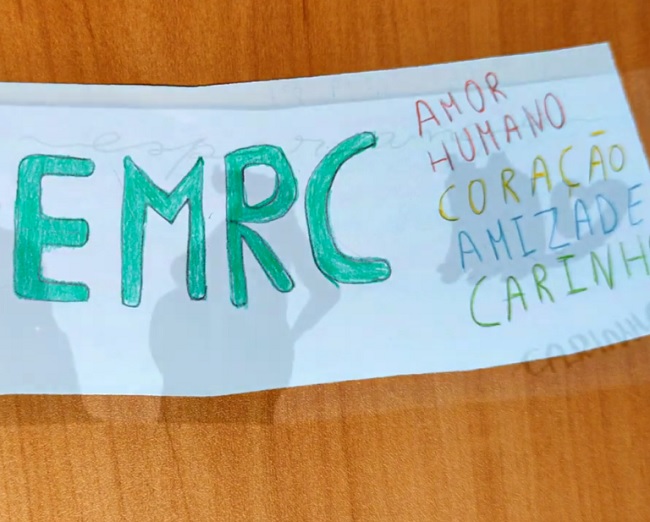 EMRC
AMOR
HUMANO
CORAÇÃO
AMIZADE
CARINH